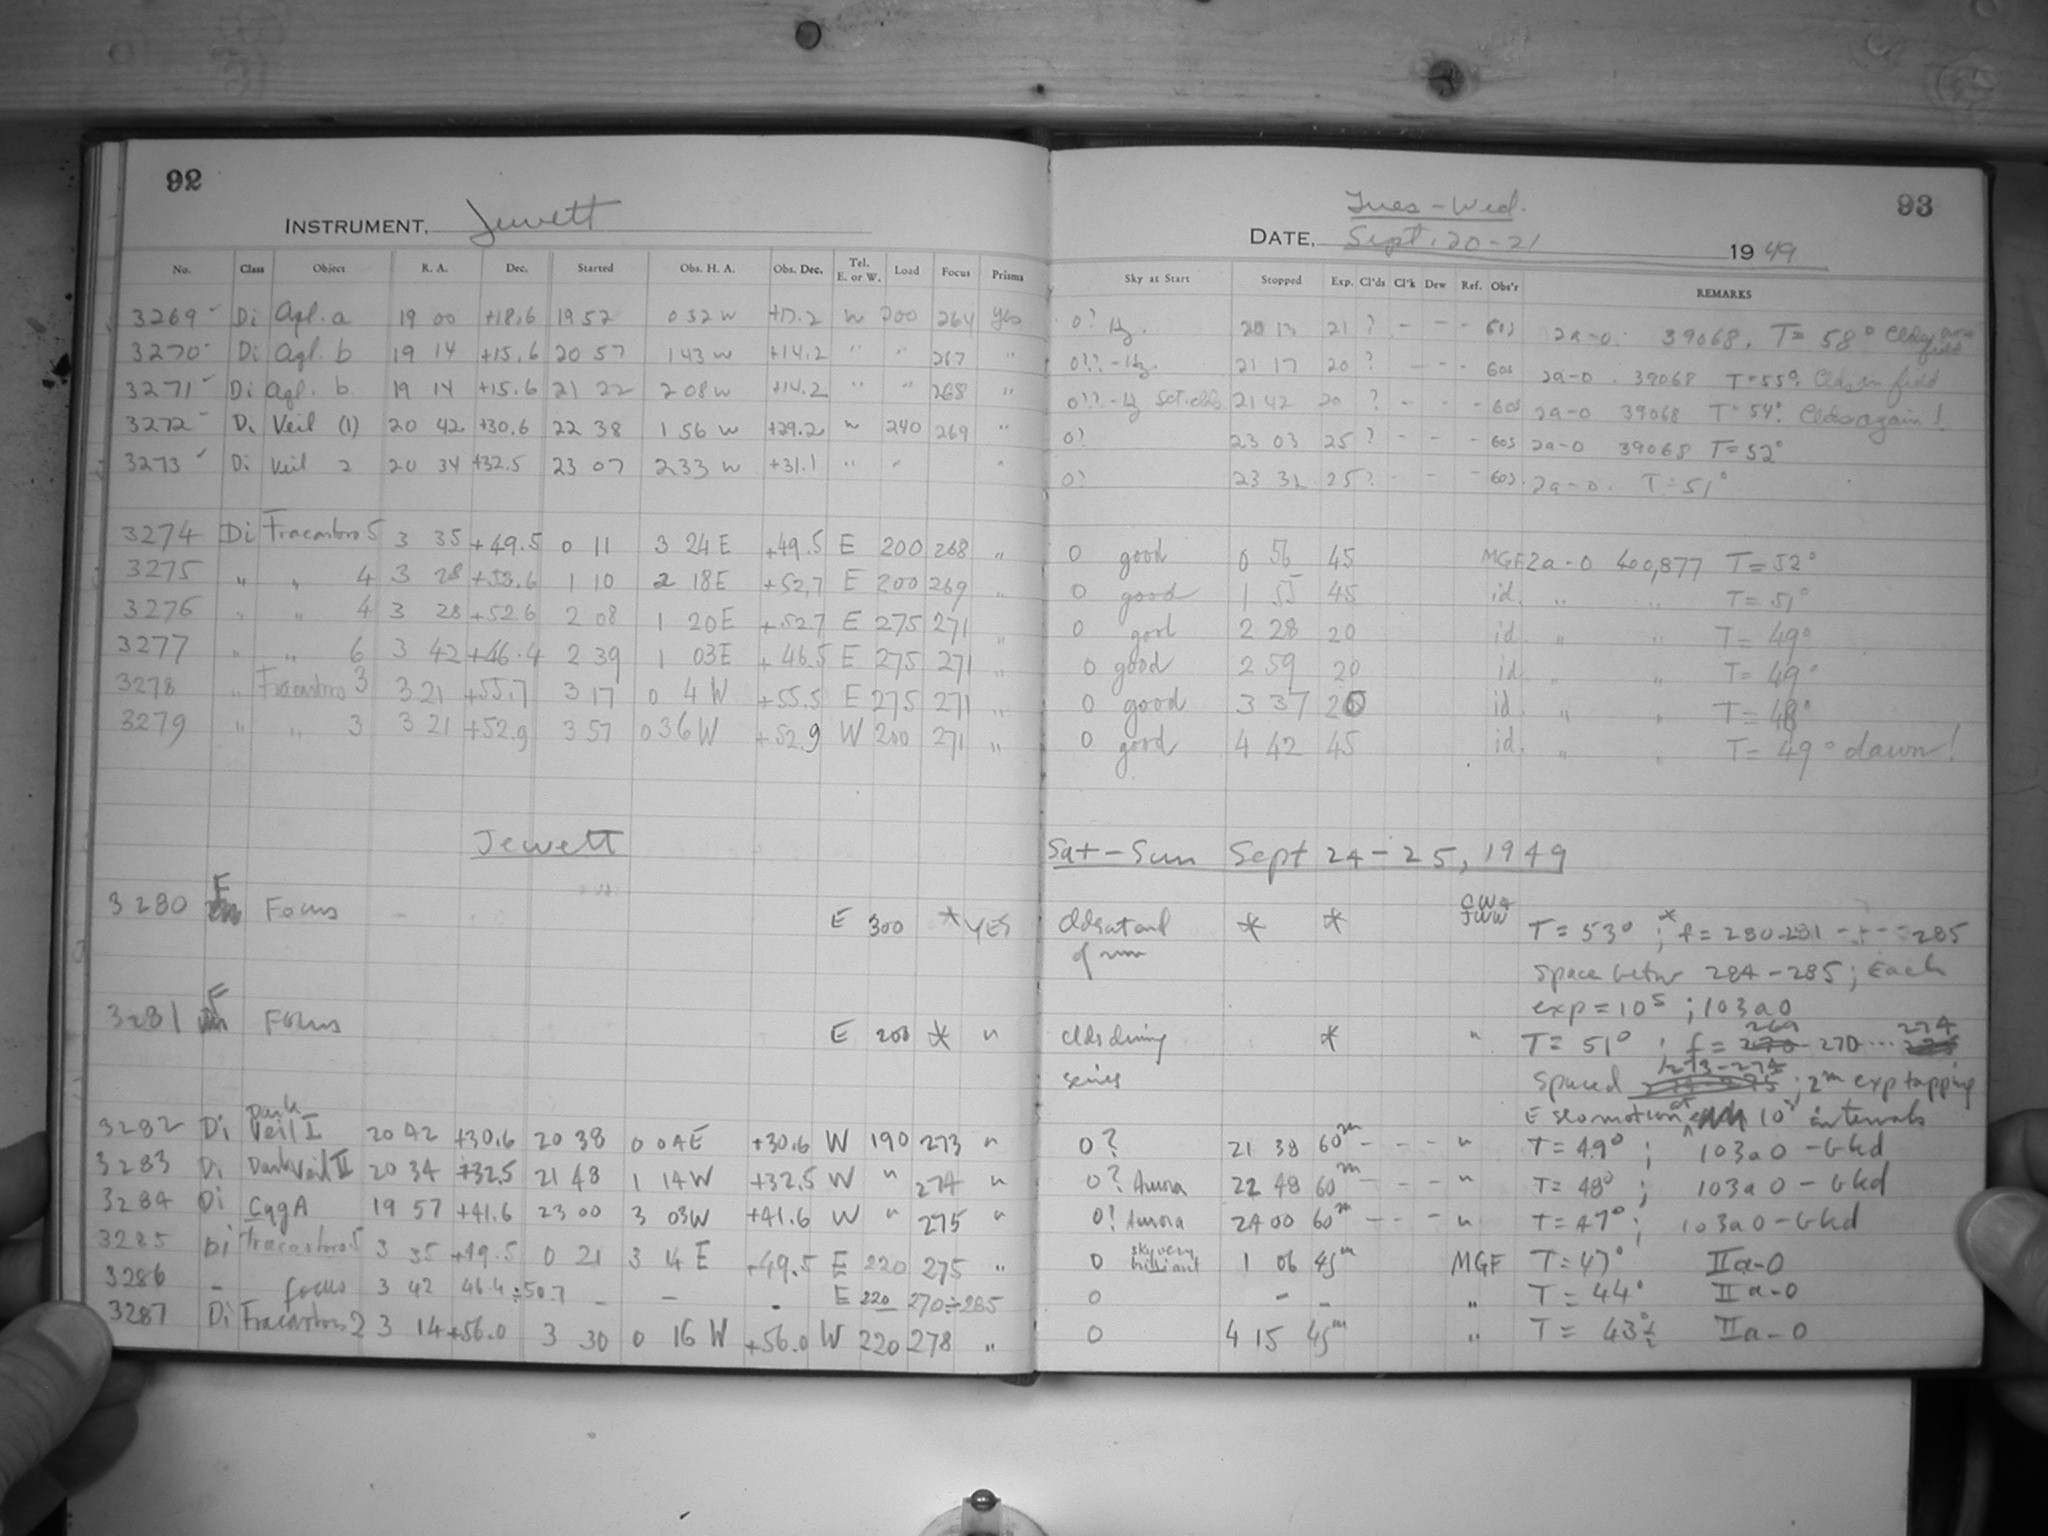 92
INSTRUMENT, Jewett
No. Class Object R. A. Dec. Started Obs. H. A. Obs. Dec. Tel. E. or W. Load Focus Prisms
3269 Di Aql. a 19 00 +18.6 19 52 0 32 W +17.2 W 200 264 yes
3270 Di Aql. b 19 14 +15.6 20 57 1 43 W +14.2 " " 267 "
3271 Di Aql. b 19 14 +15.6 21 22 2 08 W +14.2 " " 268 "
3272 Di Veil (1) 20 42 +30.6 22 38 1 56 W +29.2 W 240 269 "
3273 Di Veil 2 20 34 +32.5 23 07 2 33 W +31.1 " " "
3274 Di Fracastoro 5 3 35 +49.5 0 11 3 24 E +49.5 E 200 268 "
3275 " " 4 3 28 +52.6 1 10 2 18 E +52.7 E 200 269 "
3276 " " 4 3 28 +52.6 2 08 1 20 E +52.7 E 275 271 "
3277 " " 6 3 42 +46.4 2 39 1 03 E +46.5 E 275 271 "
3278 " Fracastoro 3 3 21 +55.7 3 17 0 4 W +55.5 E 275 271 "
3279 " " 3 3 21 +52.9 3 57 0 36 W +52.9 W 200 271 "
Jewett
3280 F Focus E 300 * YES
3281 F Focus E 200 * "
3282 Di Dark Veil I 20 42 +30.6 20 38 0 04 E +30.6 W 190 273 "
3283 Di Dark Veil II 20 34 +32.5 21 48 1 14 W +32.5 W " 274 "
3284 Di Cyg A 19 57 +41.6 23 00 3 03 W +41.6 W " 275 "
3285 Di Fracastoro 5 3 35 +49.5 0 21 3 14 E +49.5 E 220 275 "
3286 - focus 3 42 46.4÷50.7 - - - E 220 270÷285
3287 Di Fracastoro 2 3 14 +56.0 3 30 0 16 W +56.0 W 220 278 "
93
Tues-Wed.
DATE, Sept. 20-21 1949
Sky at Start Stopped Exp. Cl'ds Cl'k Dew Ref. Obs'r REMARKS
0? Hz. 20 13 21 ? - - - 2a-0. 39068. T=58° Cldy
0?? - Hz. 21 17 20 ? - - - 2a-0. 39068 T=55°. Clds in field
0?? - Hz 21 42 20 ? - - - 2a-0 39068 T=54°. Clds again!
0? 23 03 25 ? - - - 2a-0 39068 T=52°
0? 23 32 25 ? - - - 2a-0. T=51°
0 good 0 56 45 MGF 2a-0 400,877 T=52°
0 good 1 55 45 id. " " T=51°
0 good 2 28 20 id. " " T=49°
0 good 2 59 20 id. " " T=49°
0 good 3 37 20 id. " " T=48°
0 good 4 42 45 id. " " T=49° dawn!
Sat-Sun Sept 24-25, 1949
clds at end * * T=53° ; * f=280-281 - - - 285
of run Space betw 284-285; Each
exp = 10s ; 103a0
clds during * " T=51° ; f = 269 - 270 ... 274
series Spaced 273-274 ; 2m exp tapping
E slomotion at 10s intervals
0? 21 38 60m - - - " T=49° ; 103a0 - Gkd
0? Aurora 22 48 60m - - - " T=48° ; 103a0 - Gkd
0? Aurora 24 00 60m - - - " T=47° ; 103a0 - Gkd
0 sky very brilliant 1 06 45m MGF T=47° IIa-0
0 - - " T=44° IIa-0
0 4 15 45m " T=43½° IIa-0